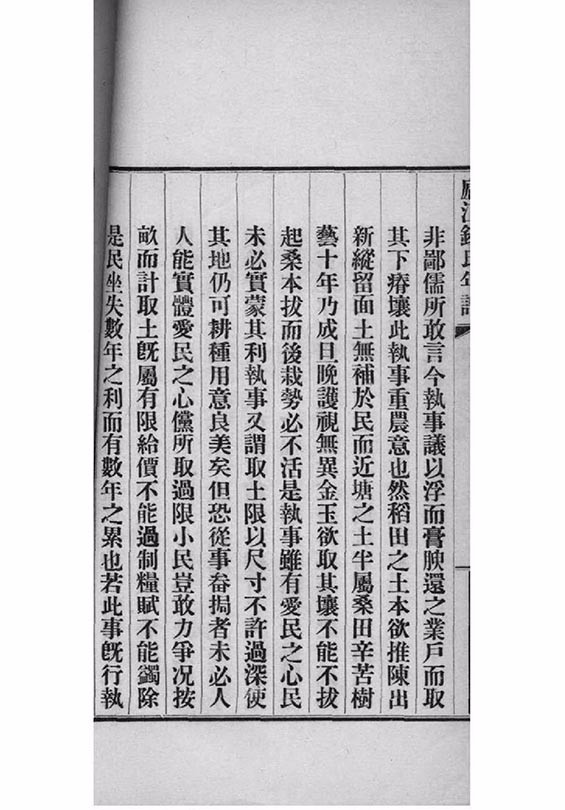 廬江錢氏年譜
非鄙儒所敢言今執事議以浮而膏腴還之業戶而取
其下瘠壤此執事重農意也然稻田之土本欲推陳出
新縱留面土無補於民而近塘之土半屬桑田辛苦樹
藝十年乃成旦晚護視無異金玉欲取其壤不能不拔
起桑本拔而後栽勢必不活是執事雖有愛民之心民
未必實蒙其利執事又謂取土限以尺寸不許過深使
其地仍可耕種用意良美矣但恐從事畚挶者未必人
人能實體愛民之心儻所取過限小民豈敢力爭况按
畝而計取土旣屬有限給價不能過制糧賦不能蠲除
是民坐失數年之利而有數年之累也若此事旣行執